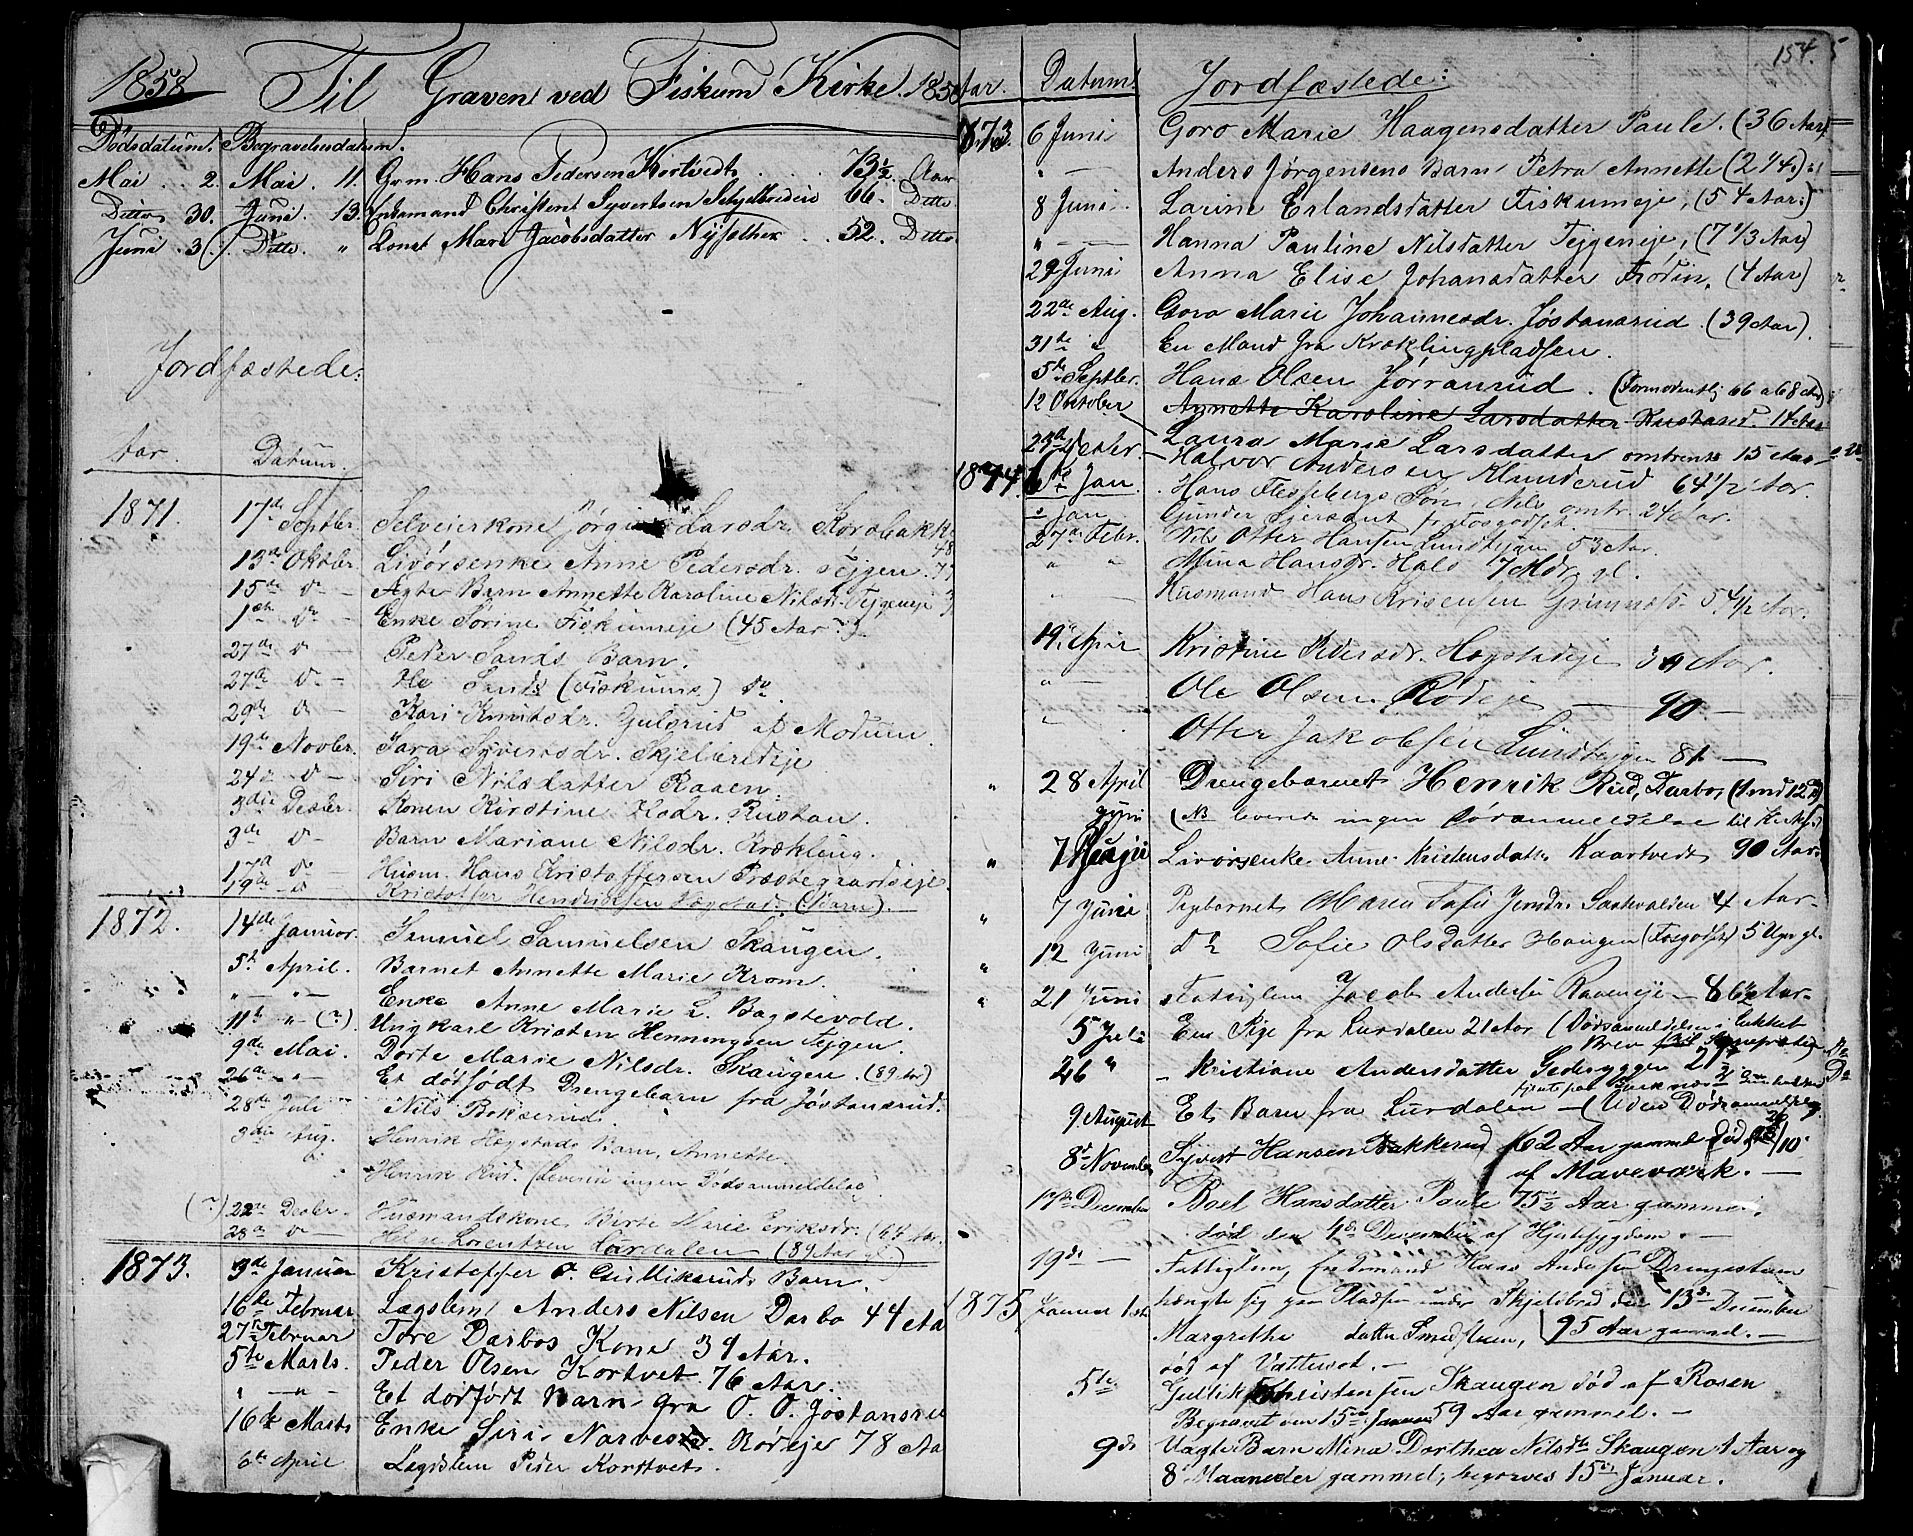 1858 Til Graven ved Fiskum Kirke. 1858
Dødsdatum. Begravelsesdatum.
Mai . . 2. Mai . 11. Grm. Hans Pedersen Kortvedt . . . 73 1/2. Aar
Ditto 30. Juni. 13. Christent Syvertsen 66. Ditto
Juni . 3. Ditto. " Mari Jacobsdatter . . 52. Ditto
Jordfæstede:
Aar. Datum.
1871. 17de Septbr. Selveierkone Jørgine Larsdr.
13de Oktbr. Livørsenke Anne Pedersdr. Tejgen.
15de do - Ægte Barn Annette Karoline Nilsdr. Tejgeneje
1ste do - Enke Sørine Fiskumeje (45 Aar?)
27de do - Peder Sands Barn.
27de do - Sands (Fiskums) do
29de do - Kari Knutsdr. Gulsrud af Modum.
19de Novbr. Sara Syversdr. Skjelbredeje
24de do - Siri Nilsdatter Raaen.
3die Decbr. Konen Kirstine Rustan.
3de do - Barn Mariane Nilsdr. Krækling.
17de do - Husm. Hans Kristoffersen Præstegaardseje
19de - do Kristoffer Hendriksen Høgstad. (Barn).
1872. 14de Januar. Samuel Samuelsen Skaugen.
5te April. Barnet Annette Marie Krom.
" — " — Enke Anne Marie L. Bagstevold.
11te " - (?) Ungkarl Kristen Henningsen Tejgen.
9de Mai. Dorte Marie Nilsdr. Skaugen. (89 Aar)
26de " - Et dødfødt Drengebarn fra Jøstansrud.
28de Juli Nils Bakserud.
3die Aug. Henrik Høgstads Barn, Annette.
Henrik Rud. (Leverin ingen Dødsanmeldelse)
(?) 22de Decbr. Husmandskone Birte Marie Eriksdr. (64 Aar.
28de do - Lorentzen Lurdalen (89 Aar gl)
1873. 3de Januar Kristoffer O. Gulliksruds Barn
16de Februar Lægslem Anders Nilsen Darbo 44 Aa
27de Februar Tore Darbos Kone 39 Aar.
5te Marts. Peder Olsen Kortvet 76 Aar.
" — " — Et dødfødt Barn fra O. O. Jøstansru
16de Marts Enke Siri Narvesdr. Rødeje 78 Aa
6te April Lægdslem Peder Kortvet.
154.
Aar. Datum. Jordfæstede:
1873. 6 Juni Goro Marie Haagensdatter Paule. (36 Aar)
" — Anders Jørgensens Barn Petra Annette (2 1/4)
8 Juni. Larine Erlandsdatter Fiskumeje, (54 Aar)
" — — Hanna Pauline Nilsdatter Tejgeneje, (7 1/3 Aar)
29 Juni Anna Elise Johansdatter Frødin, (4 Aar)
22de Aug. Goro Marie Johannesdr. Jøstansrud (39 Aar).
31te " En Mand fra Kræklingpladsen.
5te Septbr. Hans Olsen Jørransrud. (Formodentlig 66 a 68 Aar)
12 Oktober Annette Karoline Larsdatter Rustand. 14 Aar
Laura Marie Larsdatter omtrent 15 Aar
Decbr — Halvor Andersen Klunderud 64 1/2 Aar.
1874. Jan. Hans Flesebergs Søn, Nils omtr. 24 Aar.
Jan Gunder fr Fosgodset.
27de Febr. Nils Otter Hansen 53 Aar.
" " Mina Hansdr. Hals 7 Mdr gl.
" — Husmand Hans Kristensen 54 1/2 Aar.
19. April Kristine Pedersdr. Høgstadeje Aar.
" — Ole Olsen Rødeje — 90 —
" Otter Jakobsen 81 —
" 28 April Drengebarnet Henrik Rud, Darbos
(NB leverede ingen Dødsanmeldelse til
" 7 Juni Livørsenke Anne Kristensdatter Kaartvedt 90 Aar.
" 7 Juni Pigebarnet Maren Sofie Jensdr. 4 Aar.
" 12 Juni do Sofie Olsdatter Haugen (Fosgodset) 5 Uger gl.
" 21 Juni Fattiglem Jacob Andersen Raaeneje — 86 1/2 Aar.
5 Juli En Pige fra Lurdalen 21 Aar (Dødsanmeldelsen i lukket
Brev
26 " - Kristiane Andersdatter
9 August Et Barn fra Lurdalen — (Uden Dødsanmeldelse)
8de November Syvert Hansen Bakkerud 62 Aar gammel død 26/10
af Maveværk. —
December Boel Hansdatter Paule 75 1/2 Aar gammel,
død den 4de December af Hjertesygdom. —
19de — Fattiglem, Enkemand Hans Andersen
hængte sig paa Pladsen under Skjelbred den 13de December
1875 Januar 1ste Margrethe datter 95 Aar gammel. —
død af Vattersot. —
5te Gullik Christensen Skaugen død af Rosen
Begravet den 15de Januar 59 Aar gammel. —
9de Uægte Barn Mina Dorthea Nilsdtr Skaugen 1 Aar og
8 Maaneder gammel, begraves 15de Januar.